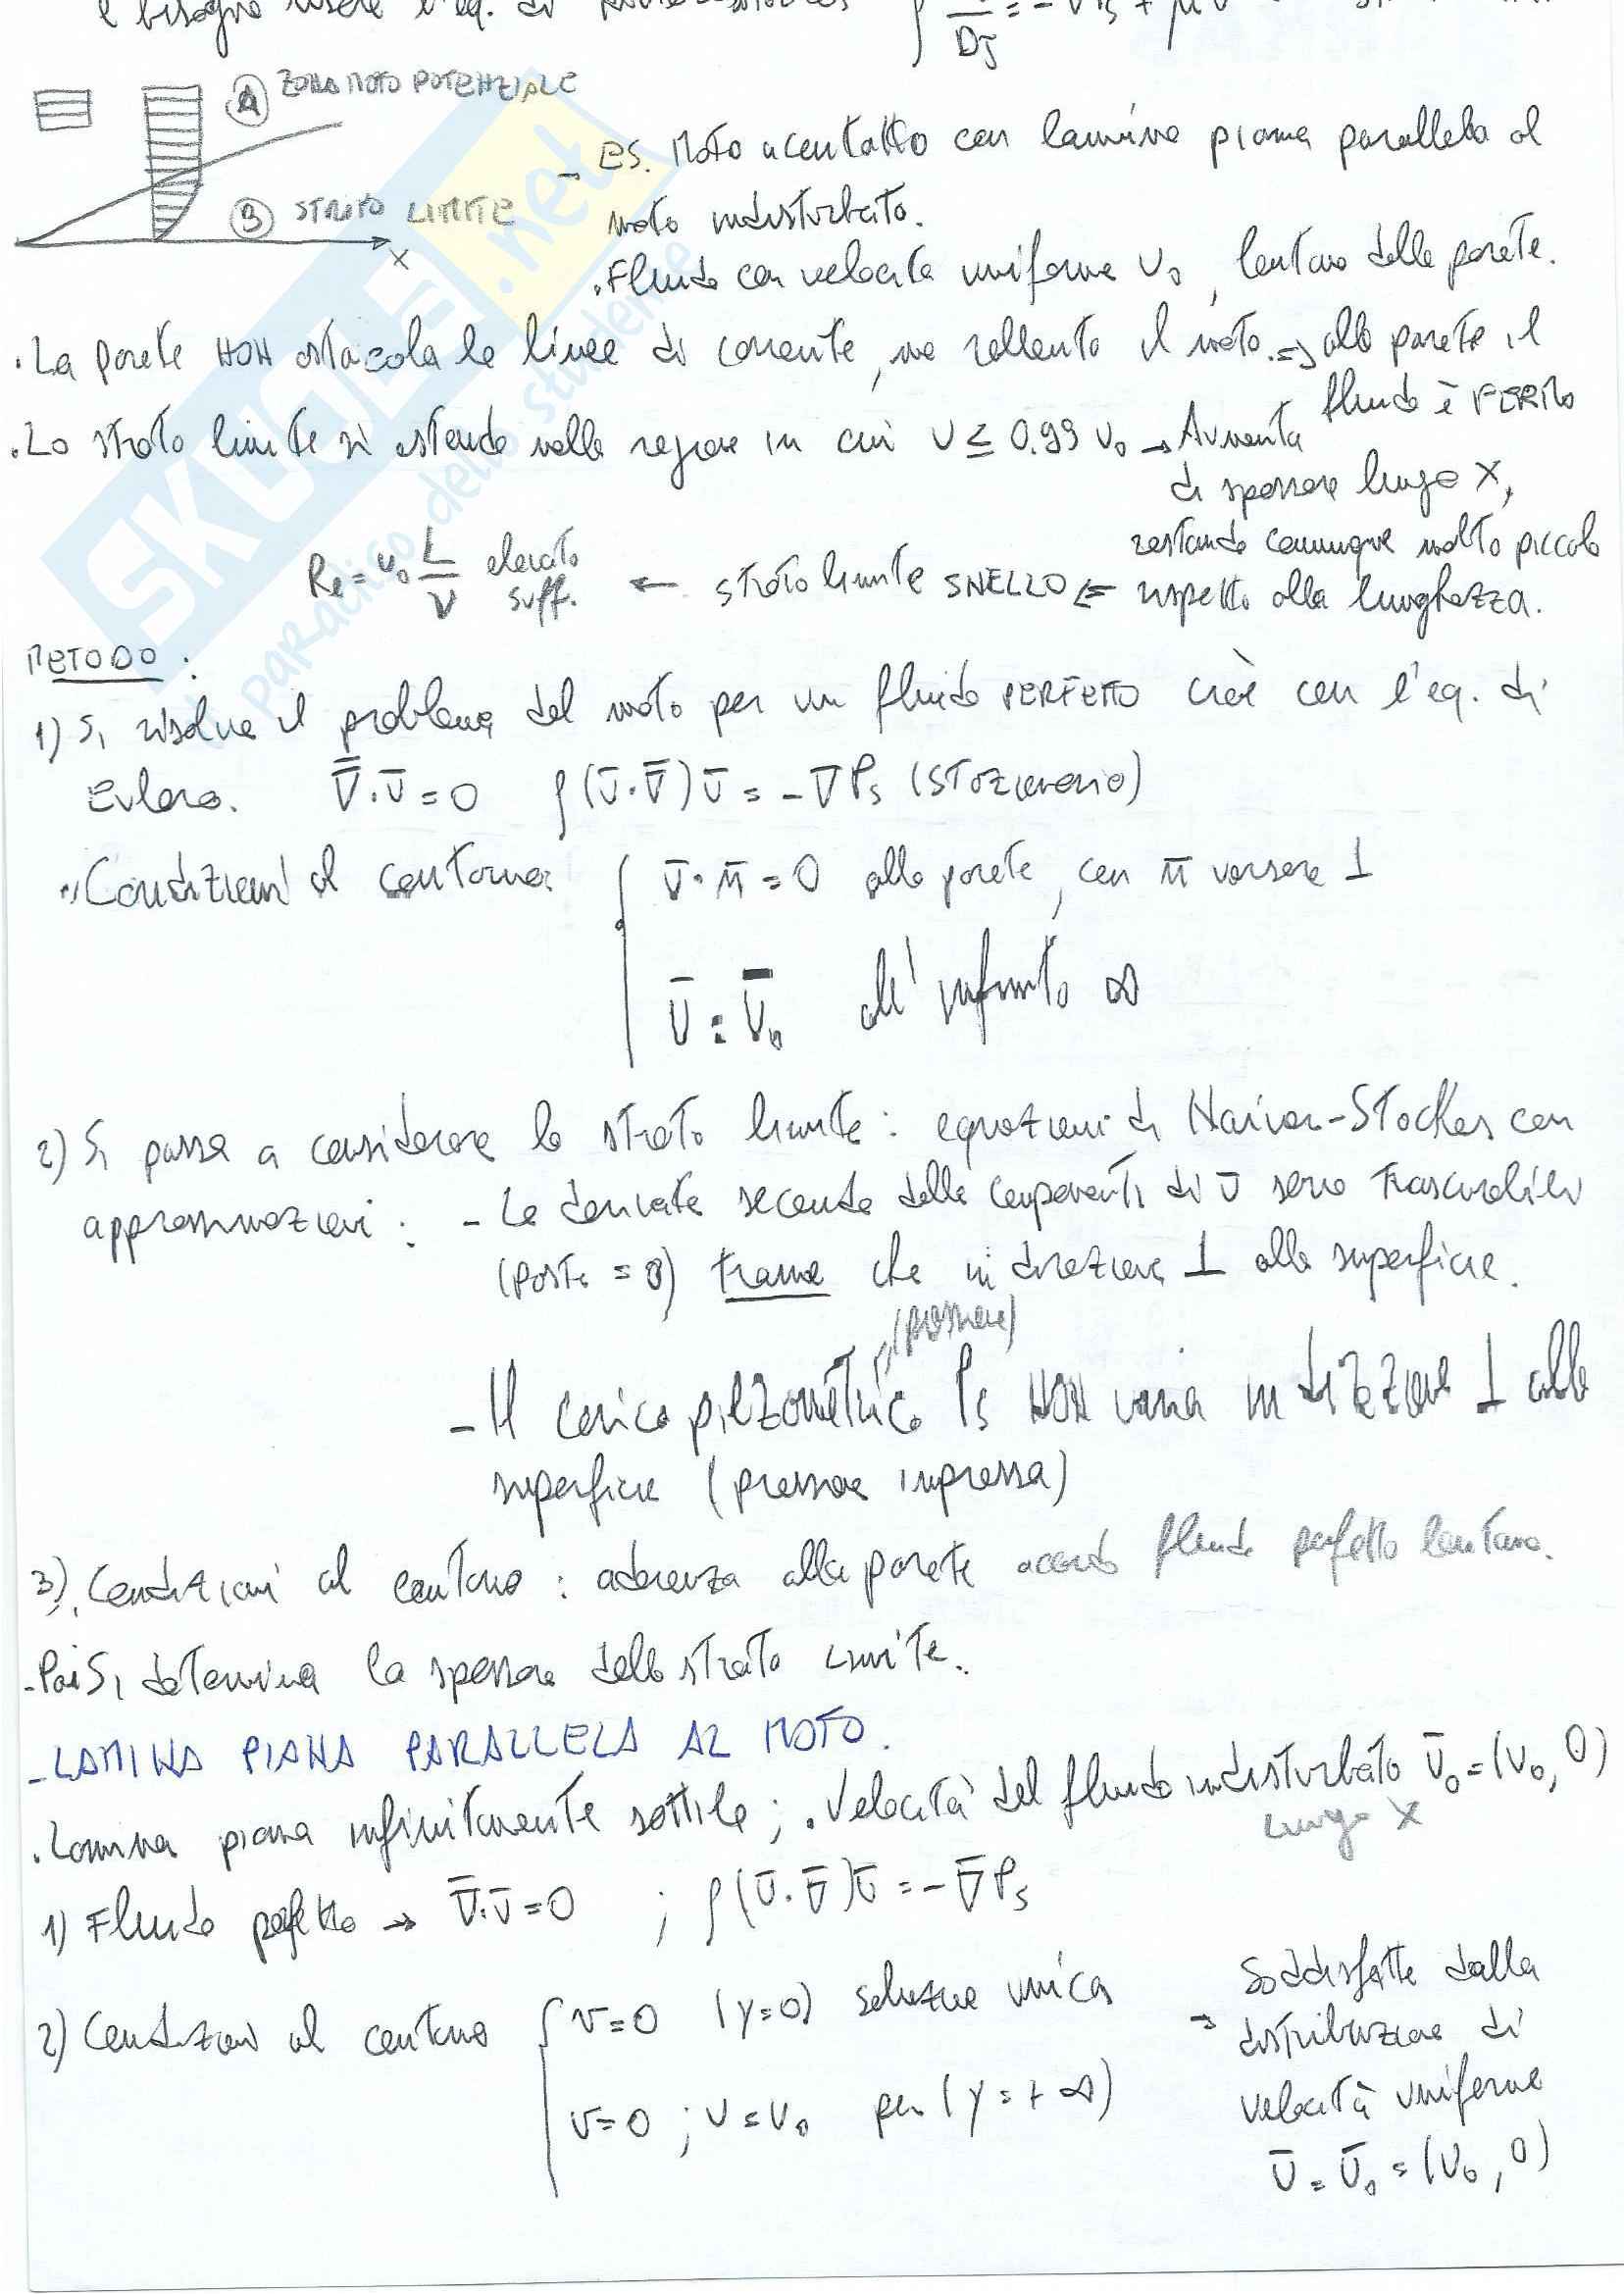 e bisogna usare l'eq. di
Dt
A ZONA MOTO POTENZIALE
B STRATO LIMITE
x
- ES. Moto a contatto con lamina piana parallela al
moto indisturbato.
. Fluido con velocità uniforme U₀, lontano dalla parete.
. La parete NON ostacola le linee di corrente, ma rallenta il moto. => alla parete il
fluido è FERMO
. Lo strato limite si estende nella regione in cui U ≤ 0.99 U₀ → Aumenta
di spessore lungo X,
restando comunque molto piccolo
rispetto alla lunghezza.
Re = U₀ L/ν elevato suff. ← strato limite SNELLO <=
METODO:
1) Si risolve il problema del moto per un fluido PERFETTO cioè con l'eq. di
Eulero. ∇̄·Ū=0 ρ(Ū·∇̄)Ū = -∇Ps (STAZIONARIO)
Condizioni al contorno: { Ū·n̄=0 alla parete, con n̄ versore ⊥
Ū = Ū₀ all'infinito ∞
2) Si passa a considerare lo strato limite: equazioni di Navier-Stockes con
approssimazioni: - Le derivate seconde delle componenti di Ū sono trascurabili
(poste = 0) tranne che in direzione ⊥ alla superficie.
(pressione)
- Il carico piezometrico Ps NON varia in direzione ⊥ alla
superficie (pressione impressa)
3) Condizioni al contorno: aderenza alla parete accordo fluido perfetto lontano.
- Poi Si determina lo spessore dello strato limite.
- LAMINA PIANA PARALLELA AL MOTO.
. Lamina piana infinitamente sottile; . Velocità del fluido indisturbato Ū₀=(U₀, 0)
lungo X
1) Fluido perfetto → ∇̄·Ū=0 ; ρ(Ū·∇̄)Ū = -∇̄Ps
2) Condizioni al contorno { v=0 (y=0) soluzione unica
v=0 ; U=U₀ per (y=+∞)
→ Soddisfatte dalla
distribuzione di
velocità uniforme
Ū = Ū₀ = (U₀, 0)
SKUOLA.net
il paradiso dello studente